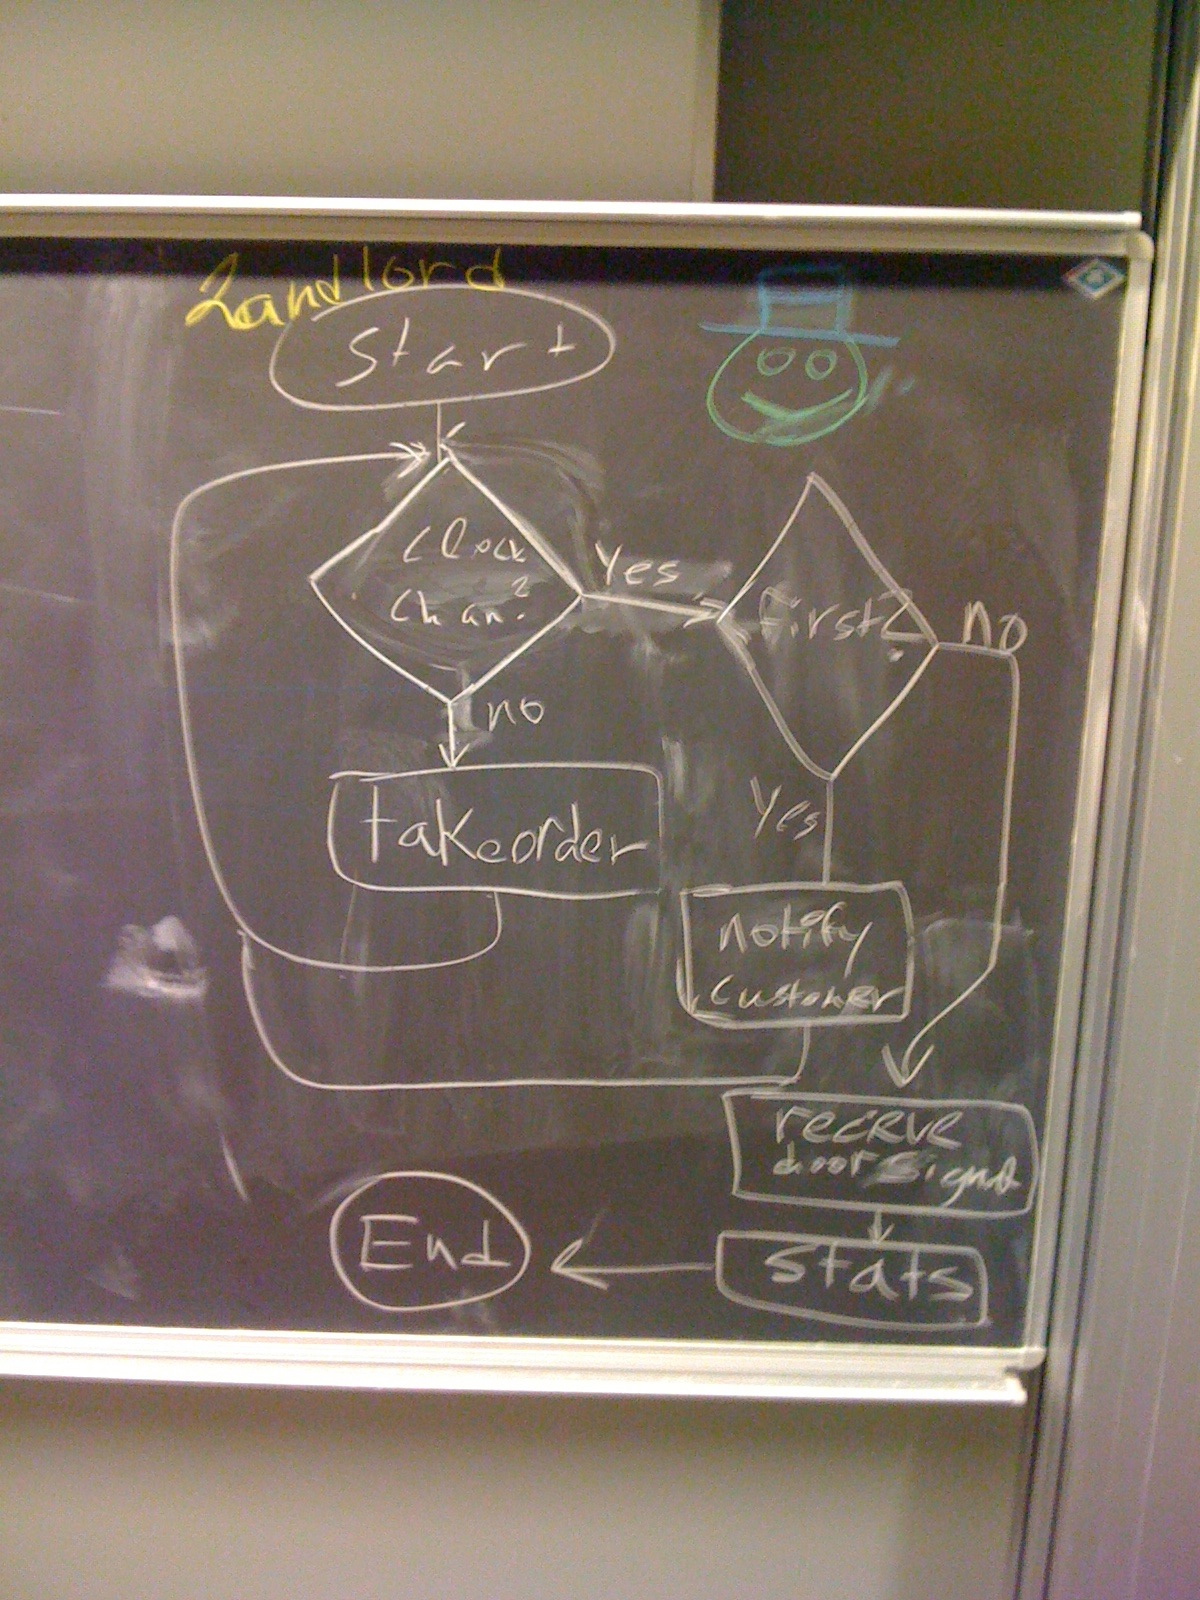 Landlord
Start
Clock
Chan?
Yes
first?
no
no
takeorder
Yes
notify
customer
receive
door signal
End
stats